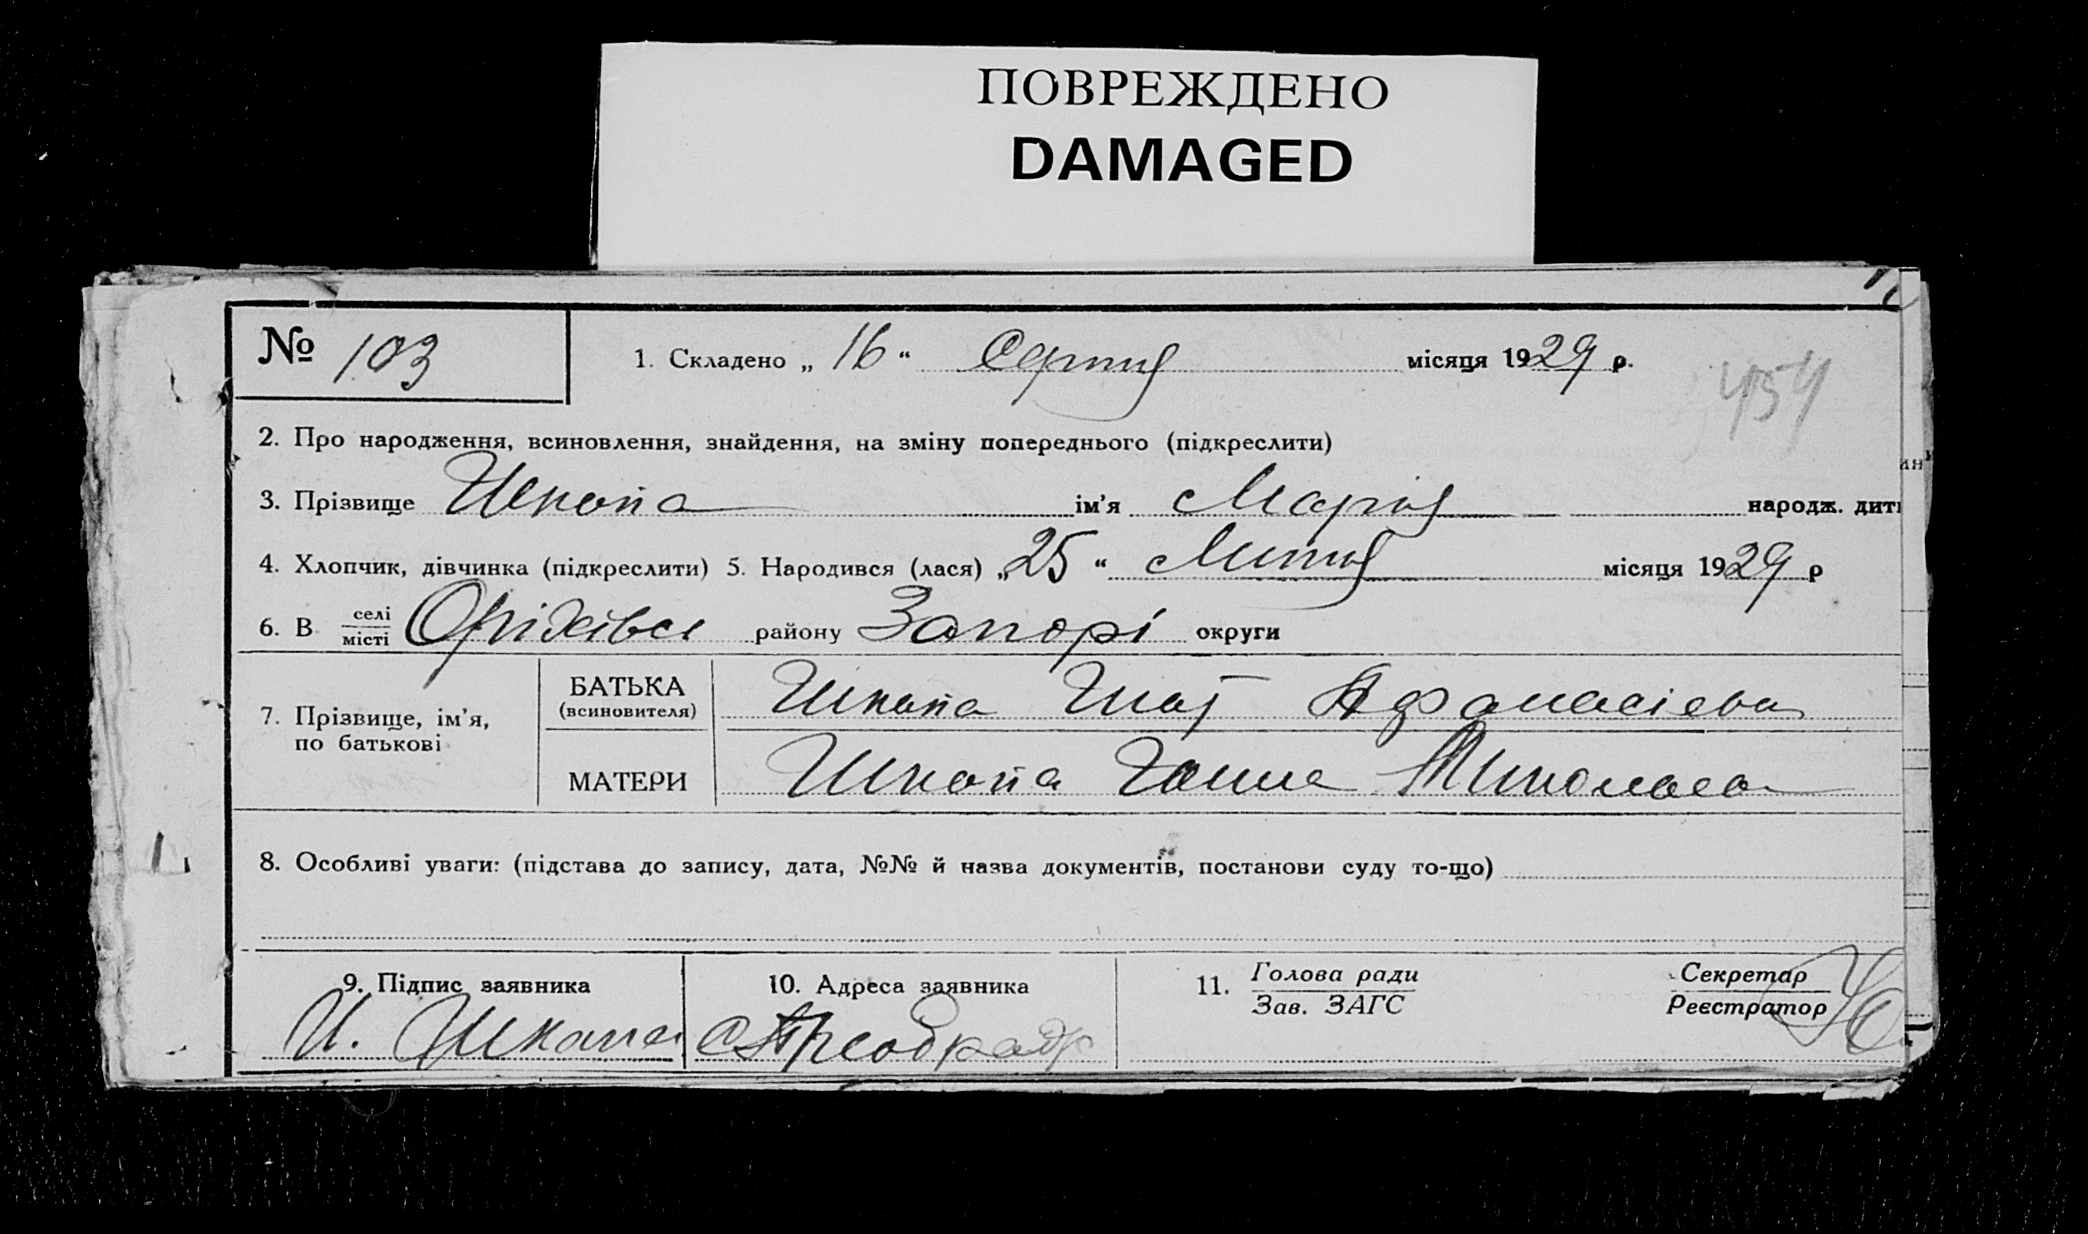 ПОВРЕЖДЕНО
DAMAGED
№ 103
1. Складено „ 16 “ Серпня місяця 1929 р.
454
2. Про народження, всиновлення, знайдення, на зміну попереднього (підкреслити)
3. Прізвище Шкапа ім’я Марія народж. дит
4. Хлопчик, дівчинка (підкреслити) 5. Народився (лася) „ 25 “ Липня місяця 1929 р
6. В селі місті Оріхівсь району Запорі округи
7. Прізвище, ім’я, по батькові
БАТЬКА (всиновителя) Шкапа Гнат Афанасієва
МАТЕРИ Шкапа Ганна Миколаєв
8. Особливі уваги: (підстава до запису, дата, №№ й назва документів, постанови суду то-що)
9. Підпис заявника 10. Адреса заявника 11. Голова ради Зав. ЗАГС Секретар Реєстратор
И. Шкапа с Преображ